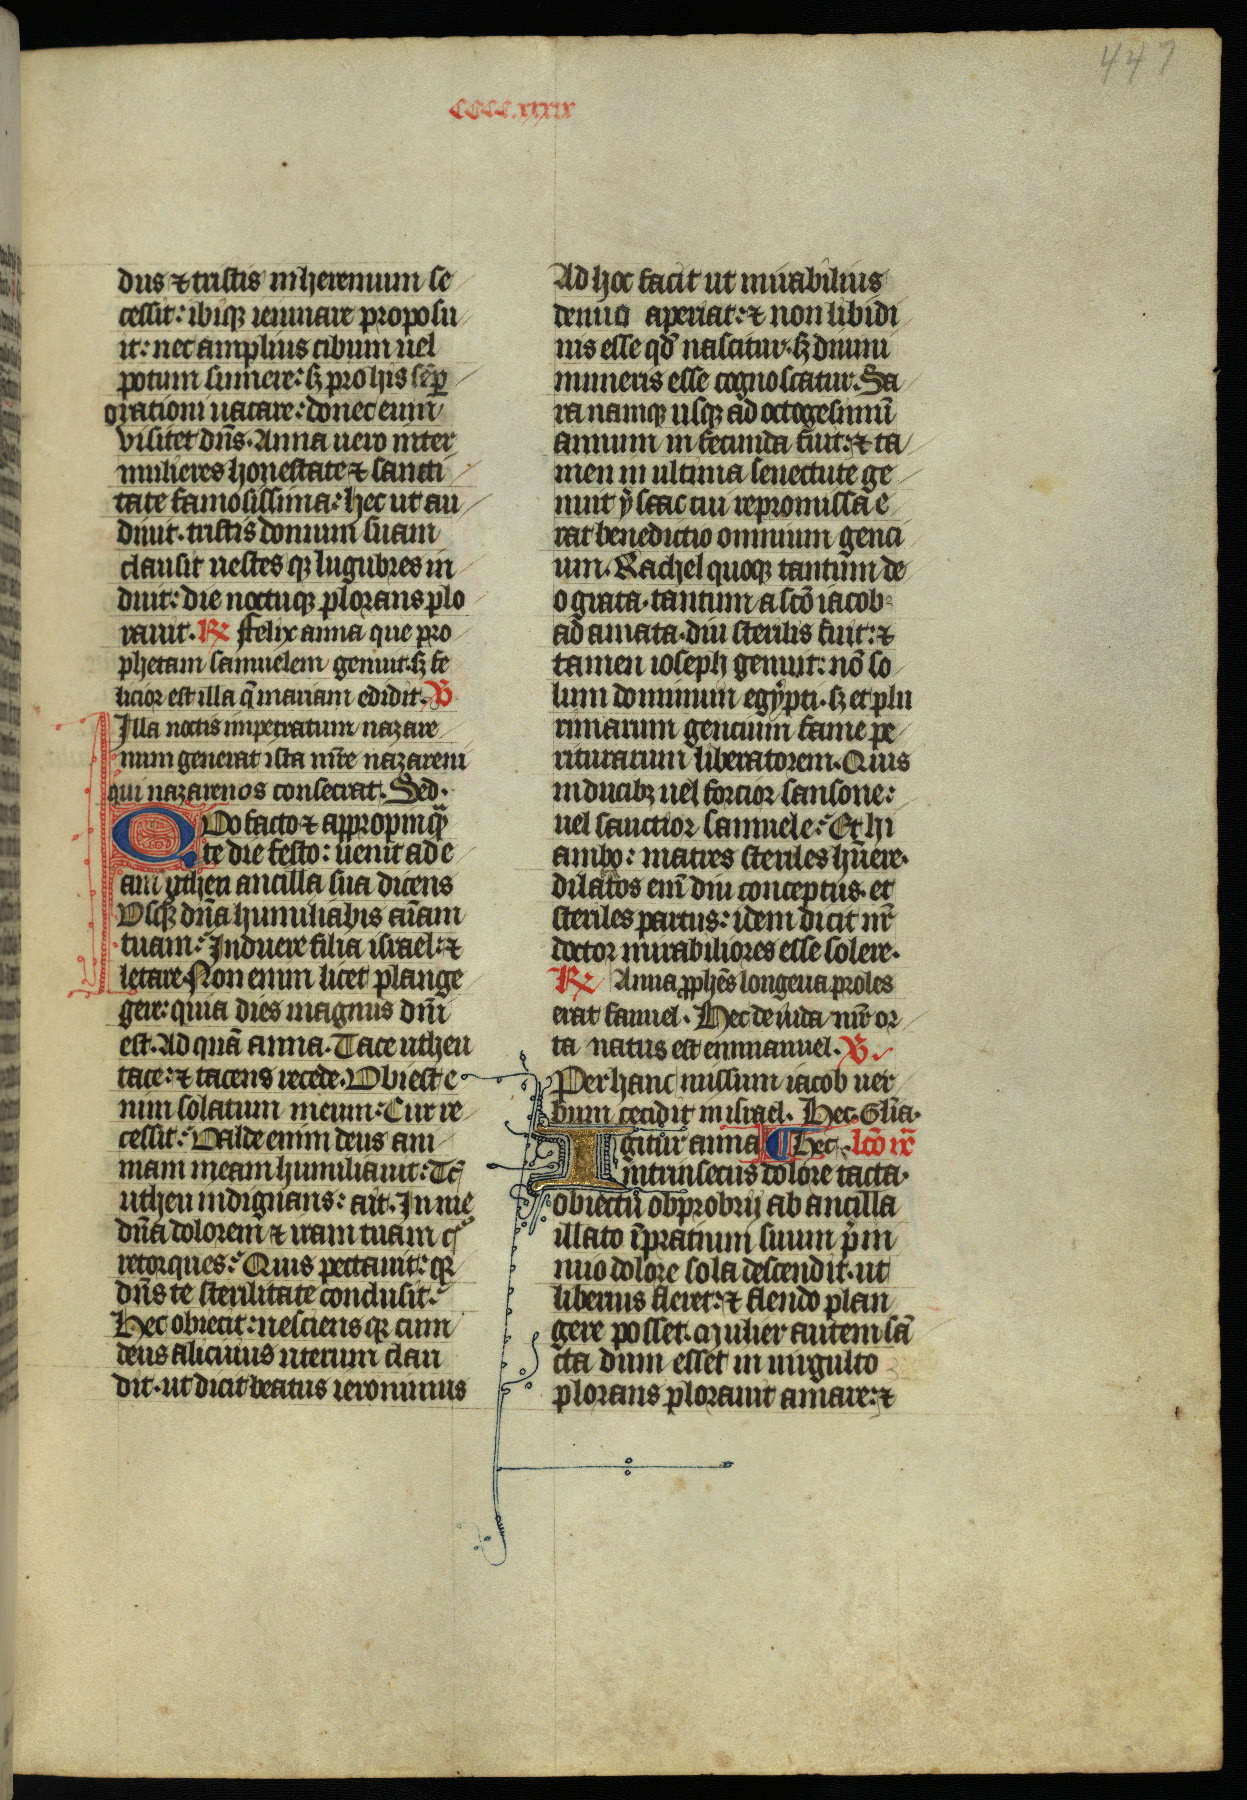 447
CCCC.xxxix
dus ⁊ tristis in heremum se
cessit: ibiqꝫ ieiunare proposu
it: nec amplius cibum uel
potum sumere: sꝫ pro his sꝑ
orationi uacare: donec eum
visitet dn̄s. Anna uero inter
mulieres honestate ⁊ sancti
tate famosissima: hec ut au
diuit. tristis domum suam
clausit uestes qꝫ lugubres in
duit: die noctuqꝫ plorans plo
rauit. ℞ Felix anna que pro
phetam samuelem genuit. sꝫ fe
licior est illa q̄ mariam edidit. ℣
Illa noctis impetratum nazare
num generat ista mr̄e nazareni
qui nazarenos consecrat. Sed.
Quo facto ⁊ appropinq̄n
te die festo: uenit ad e
am ytheu ancilla sua dicens
Vsqꝫ dn̄a humiliabis aīam
tuam: Induere filia israel: ⁊
letare. Non enim licet plange
gere: quia dies magnus dn̄i
est. Ad quā anna. Tace utheu
tace: ⁊ tacens recede. Obiest e
nim solatum meum: Cur re
cessit: Valde enim deus ani
mam meam humiliauit: Tc̄
utheu indignans: ait. In me
dn̄a dolorem ⁊ iram tuam cur
retorques: Quis peccauit: qꝫ
dn̄s te sterilitate conclusit:
Hec obiecit: nesciens qꝫ cum
deus alicuius uterum clau
dit. ut dicit beatus ieronimus
Ad hoc facit ut mirabilius
denuo aperiat: ⁊ non libidi
nis esse qd̄ nascitur. sꝫ diuini
muneris esse cognoscatur. Sa
ra namqꝫ usqꝫ ad octogesimū
annum in fecunda fuit: ⁊ ta
men in ultima senectute ge
nuit ysaac cui repromissa e
rat benedictio omnium genci
um. Rachel quoqꝫ tantum de
o grata. tantum a sc̄o iacob
ad amata. diu sterilis fuit: ⁊
tamen ioseph genuit: nō so
lum dominum egypti. sꝫ et plu
rimarum gencium fame pe
riturarum liberatorem. Quis
in ducibꝫ uel forcior sansone:
uel sanctior samuele: Et hi
ambo: matres steriles hūere.
dilatos eni̅ diu conceptus. et
steriles partus: idem dicit nr̄
doctor mirabiliores esse solere.
℞ Anna ꝓphēs longeua proles
erat fanuel. Hec de iuda nūr or
ta natus est emmanuel. ℣.
Per hanc missum iacob uer
bum cecidit in israel. Hec. Glīa.
Igitur anna ¶ Hec. lcō ix̄
intrinsecus dolore tacta.
obiectū obprobrij ab ancilla
illato īpratium suum p̄ in
nuo dolore sola descendit. ut
liberius fleret: ⁊ flendo plan
gere posset. Mulier autem sā
cta dum esset in uirgulto
plorans plorauit amare: ⁊